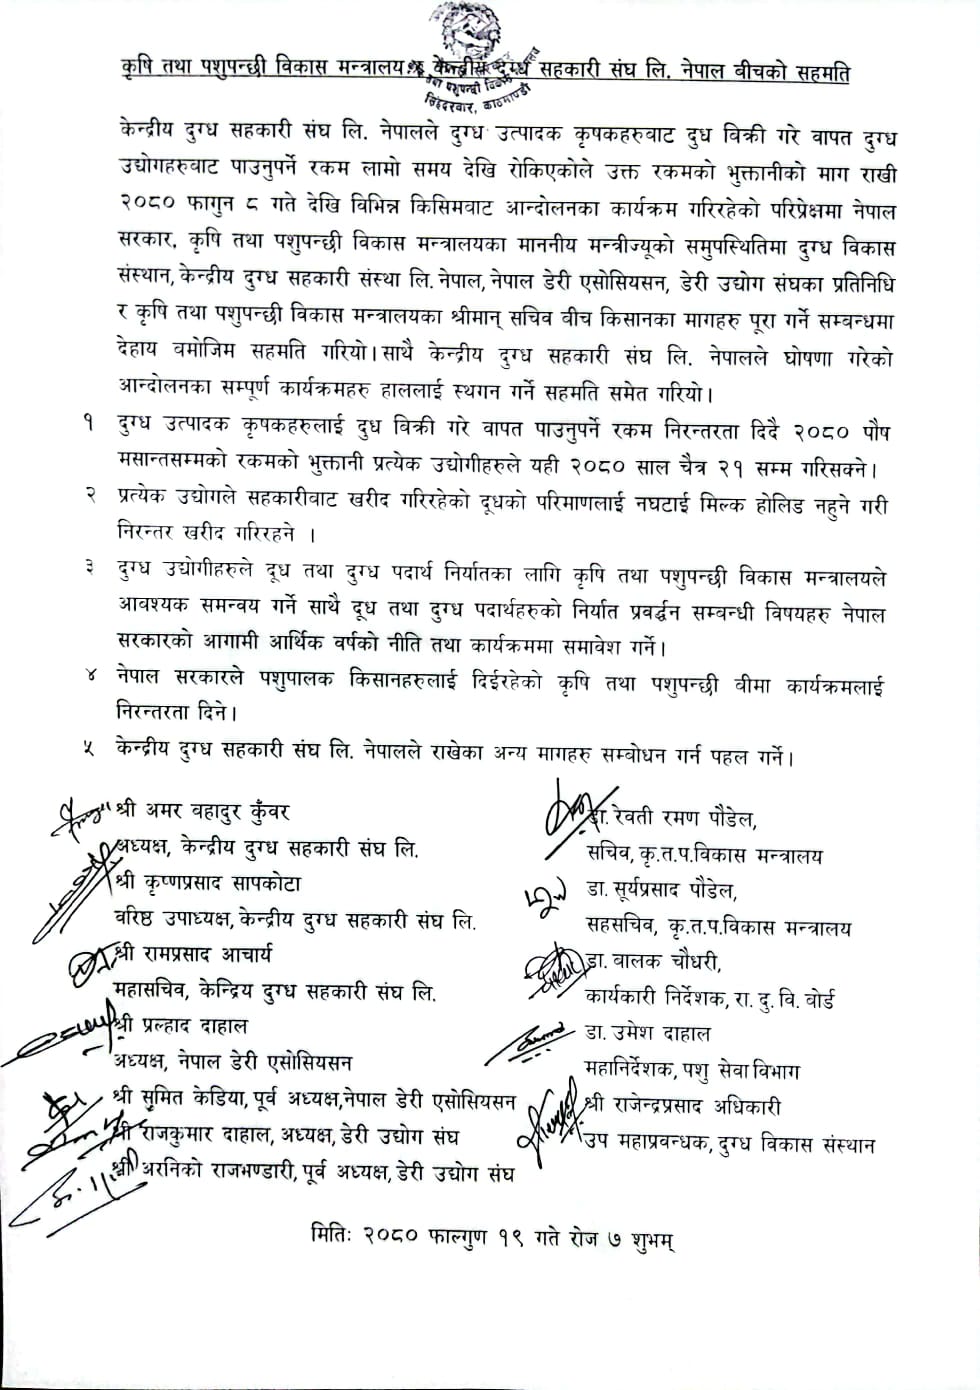 कृषि तथा पशुपन्छी विकास मन्त्रालय र केन्द्रीय दुग्ध सहकारी संघ लि. नेपाल बीचको सहमति
सिंहदरबार, काठमाण्डौ
केन्द्रीय दुग्ध सहकारी संघ लि. नेपालले दुग्ध उत्पादक कृषकहरुबाट दुध विक्री गरे वापत दुग्ध
उद्योगहरुबाट पाउनुपर्ने रकम लामो समय देखि रोकिएकोले उक्त रकमको भुक्तानीको माग राखी
२०८० फागुन ८ गते देखि विभिन्न किसिमवाट आन्दोलनका कार्यक्रम गरिरहेको परिप्रेक्षमा नेपाल
सरकार, कृषि तथा पशुपन्छी विकास मन्त्रालयका माननीय मन्त्रीज्यूको समुपस्थितिमा दुग्ध विकास
संस्थान, केन्द्रीय दुग्ध सहकारी संस्था लि. नेपाल, नेपाल डेरी एसोसियसन, डेरी उद्योग संघका प्रतिनिधि
र कृषि तथा पशुपन्छी विकास मन्त्रालयका श्रीमान् सचिव वीच किसानका मागहरु पूरा गर्ने सम्बन्धमा
देहाय वमोजिम सहमति गरियो। साथै केन्द्रीय दुग्ध सहकारी संघ लि. नेपालले घोषणा गरेको
आन्दोलनका सम्पूर्ण कार्यक्रमहरु हाललाई स्थगन गर्ने सहमति समेत गरियो।
१ दुग्ध उत्पादक कृषकहरुलाई दुध विक्री गरे वापत पाउनुपर्ने रकम निरन्तरता दिदै २०८० पौष
मसान्तसम्मको रकमको भुक्तानी प्रत्येक उद्योगीहरुले यही २०८० साल चैत्र २१ सम्म गरिसक्ने।
२ प्रत्येक उद्योगले सहकारीवाट खरीद गरिरहेको दूधको परिमाणलाई नघटाई मिल्क होलिड नहुने गरी
निरन्तर खरीद गरिरहने ।
३ दुग्ध उद्योगीहरुले दूध तथा दुग्ध पदार्थ निर्यातका लागि कृषि तथा पशुपन्छी विकास मन्त्रालयले
आवश्यक समन्वय गर्ने साथै दूध तथा दुग्ध पदार्थहरुको निर्यात प्रवर्द्धन सम्बन्धी विषयहरु नेपाल
सरकारको आगामी आर्थिक वर्षको नीति तथा कार्यक्रममा समावेश गर्ने।
४ नेपाल सरकारले पशुपालक किसानहरुलाई दिईरहेको कृषि तथा पशुपन्छी वीमा कार्यक्रमलाई
निरन्तरता दिने।
५ केन्द्रीय दुग्ध सहकारी संघ लि. नेपालले राखेका अन्य मागहरु सम्बोधन गर्न पहल गर्ने।
श्री अमर वहादुर कुँवर
अध्यक्ष, केन्द्रीय दुग्ध सहकारी संघ लि.
श्री कृष्णप्रसाद सापकोटा
वरिष्ठ उपाध्यक्ष, केन्द्रीय दुग्ध सहकारी संघ लि.
श्री रामप्रसाद आचार्य
महासचिव, केन्द्रिय दुग्ध सहकारी संघ लि.
श्री प्रल्हाद दाहाल
अध्यक्ष, नेपाल डेरी एसोसियसन
श्री सुमित केडिया, पूर्व अध्यक्ष,नेपाल डेरी एसोसियसन
श्री राजकुमार दाहाल, अध्यक्ष, डेरी उद्योग संघ
श्री अरनिको राजभण्डारी, पूर्व अध्यक्ष, डेरी उद्योग संघ
डा. रेवती रमण पौडेल,
सचिव, कृ.त.प.विकास मन्त्रालय
डा. सूर्यप्रसाद पौडेल,
सहसचिव, कृ.त.प.विकास मन्त्रालय
डा. वालक चौधरी,
कार्यकारी निर्देशक, रा. दु. वि. वोर्ड
डा. उमेश दाहाल
महानिर्देशक, पशु सेवा विभाग
श्री राजेन्द्रप्रसाद अधिकारी
उप महाप्रवन्धक, दुग्ध विकास संस्थान
मितिः २०८० फाल्गुण १९ गते रोज ७ शुभम्